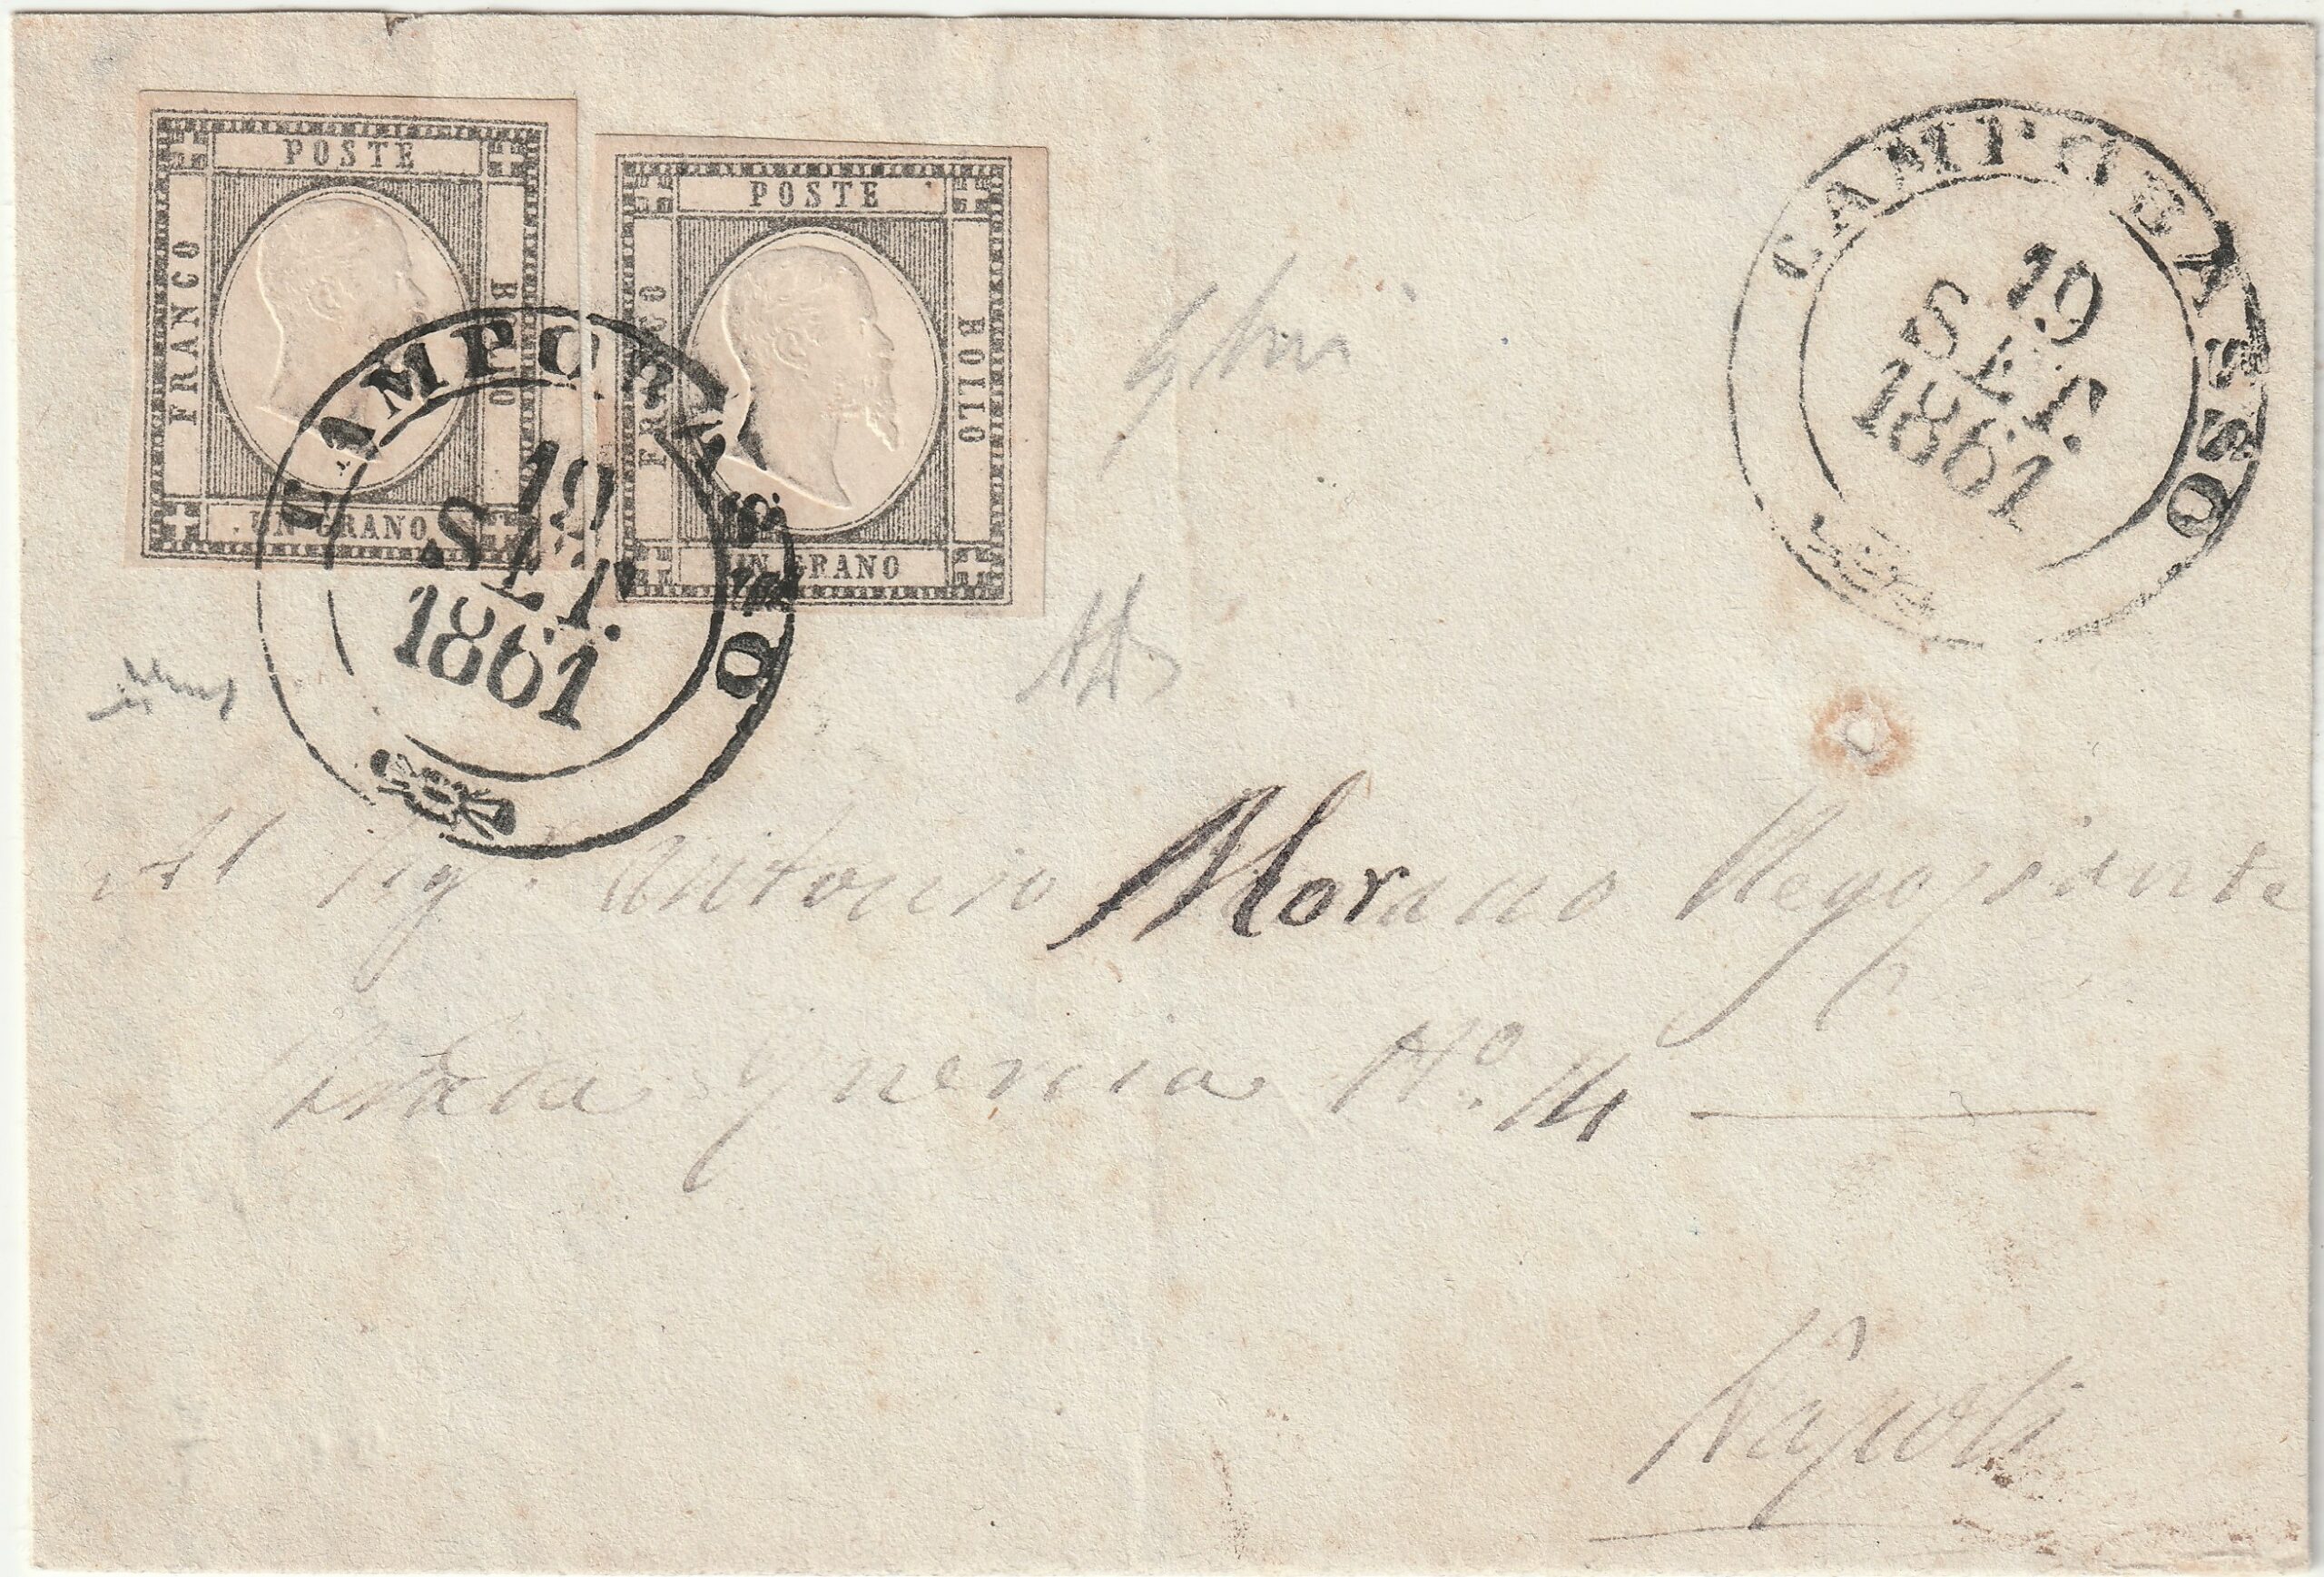 POSTE
FRANCO
BOLLO
UN GRANO
POSTE
FRANCO
BOLLO
UN GRANO
CAMPOBASSO
19
SET.
1861
CAMPOBASSO
19
SET.
1861
Al Sig. Antonio Morano Negoziante
Strada Quercia N.o 14
Napoli